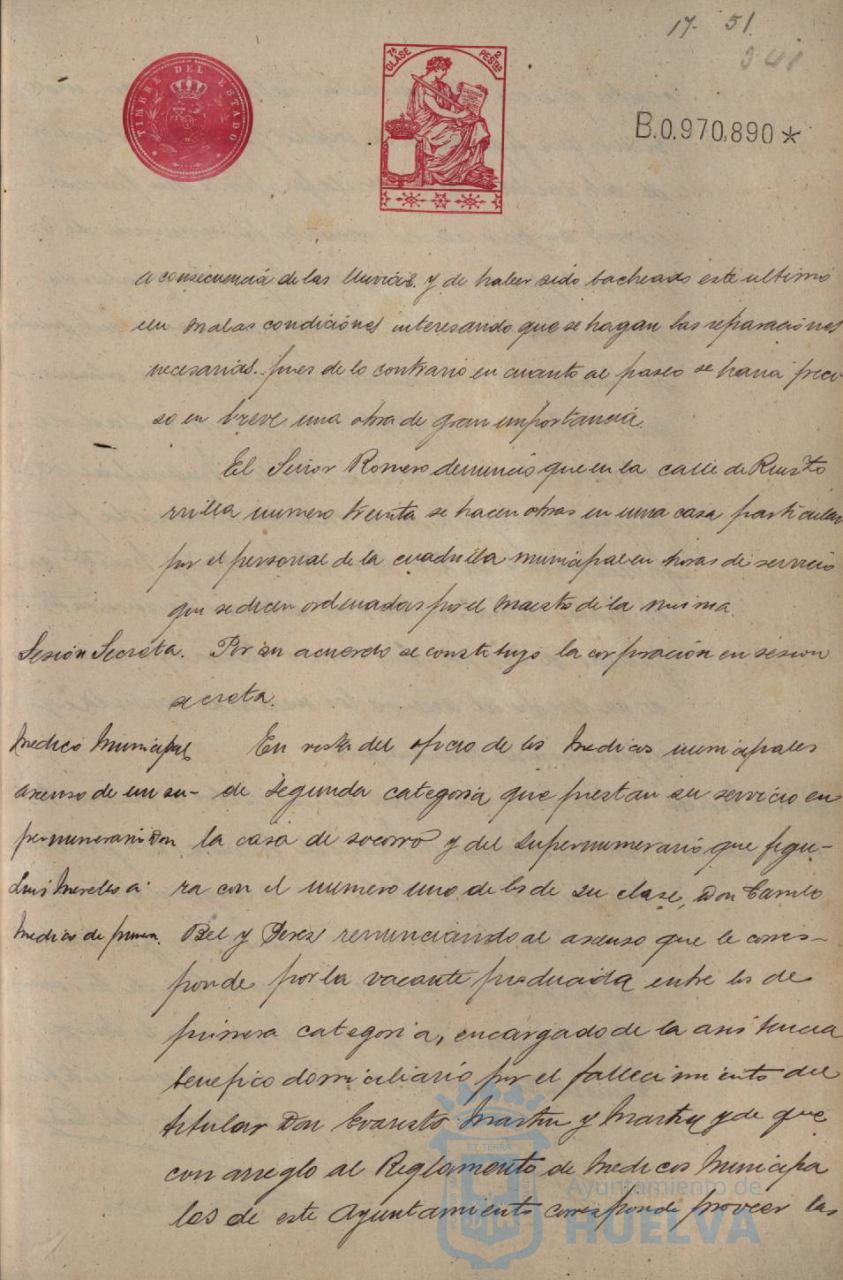 17- 51
341
TIMBRE DEL ESTADO
7ª CLASE
2 PESTAS
B.0.970.890*
a consecuencia de las lluvias. y de haber sido bacheado este ultimo
en malas condiciónes interesando que se hagan las reparaciónes
necesarias. pues de lo contrario en cuanto al paseo se haria preci
so en breve una obra de gran importancia.
El Señor Romero denunció que en la calle de
rrilla numero treinta se hacen obras en una casa particular
por el personal de la cuadrilla municipal en horas de servicio
que se dicen ordenadas por el maestro de la misma.
Sesión Secreta. Por su acuerdo se constituyó la corporación en sesion
secreta.
Medico Municipal En vista del oficio de los Medicos municipales
ascenso de un su- de segunda categoria que prestan su servicio en
pernumerario Don la casa de socorro y del supernumerario que figu-
Luis Mereles a ra con el numero uno de los de su clase, Don Camilo
Medico de primra. Bel y Perez renunciando al ascenso que le corres-
ponde por la vacante producida entre los de
primera categoria, encargado de la asistencia
benefico domiciliario por el fallecimiento del
titular Don Evaristo Martin y Martin y de que
con arreglo al Reglamento de Medicos Municipa
les de este Ayuntamiento corresponde proveer las
Ayuntamiento de
HUELVA